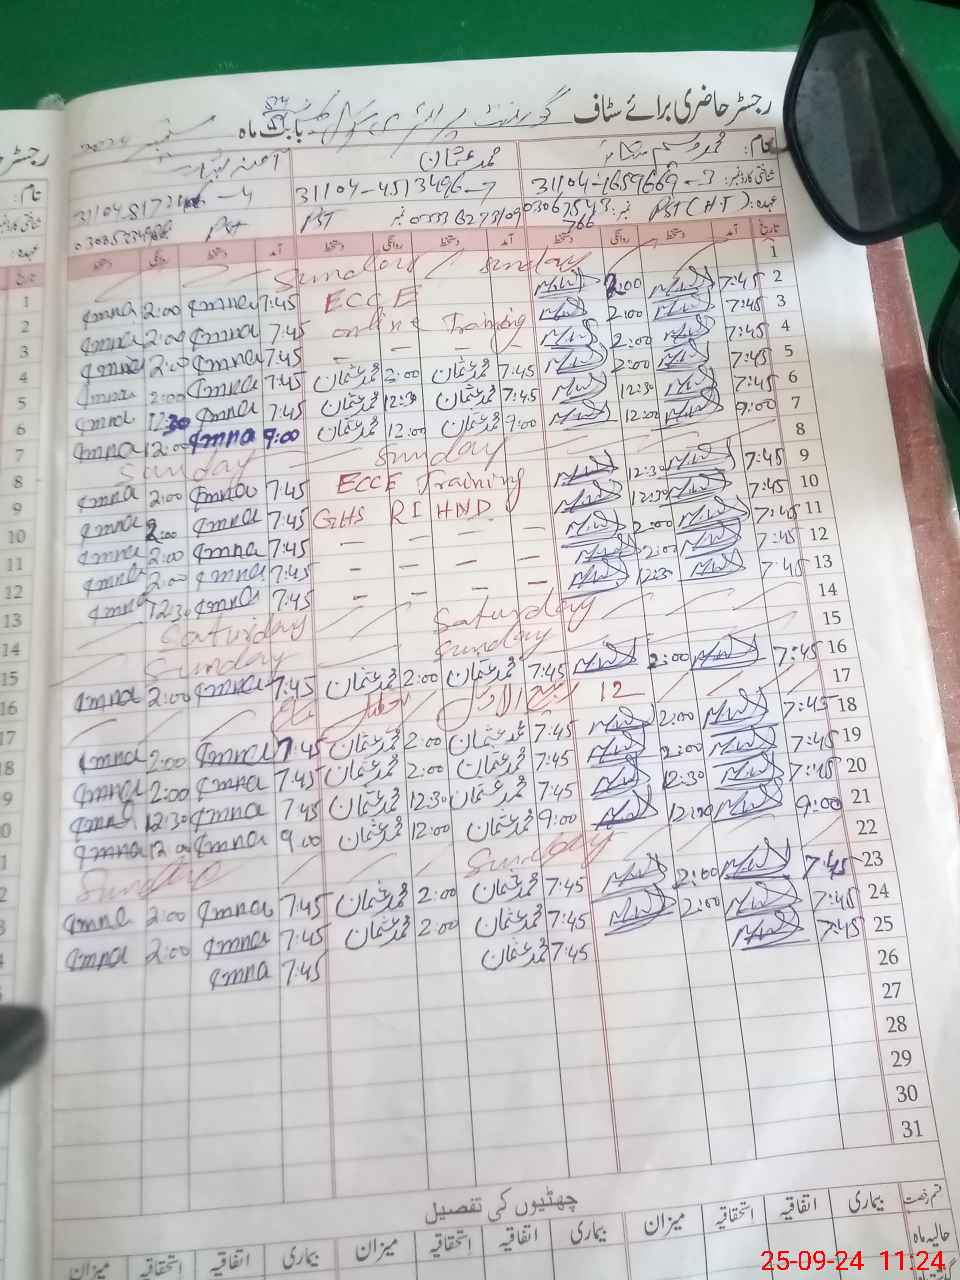 رجسٹر حاضری برائے سٹاف گورنمنٹ پرائمری سکول بابت ماہ ستمبر 2024
نام: محمد وسیم محمد عثمان آمنہ
شناختی کارڈ نمبر: 31104-1659669-3 31104-4513496-7
عہدہ: PST (H.T) نمبر: PST نمبر PST
تاریخ آمد دستخط روانگی دستخط آمد دستخط روانگی دستخط آمد دستخط روانگی دستخط
1 Sunday Sunday
2 7:45 2:00 ECCE 7:45 Amna 2:00 Amna
3 7:45 2:00 online Training 7:45 Amna 2:00 Amna
4 7:45 2:00 — — — 7:45 Amna 2:00 Amna
5 7:45 2:00 7:45 محمد عثمان 2:00 محمد عثمان 7:45 Amna 2:00 Amna
6 7:45 12:30 7:45 محمد عثمان 12:30 محمد عثمان 7:45 Amna 12:30 Amna
7 9:00 12:00 9:00 محمد عثمان 12:00 محمد عثمان 9:00 Amna 12:00 Amna
8 Sunday Sunday
9 7:45 12:30 ECCE Training 7:45 Amna 2:00 Amna
10 7:45 12:30 GHS RI HND 7:45 Amna 2:00 Amna
11 7:45 2:00 — — — — 7:45 Amna 2:00 Amna
12 7:45 2:00 — — — — 7:45 Amna 2:00 Amna
13 7:45 12:30 — — — — 7:45 Amna 12:30 Amna
14 Saturday Saturday
15 Sunday Sunday
16 7:45 2:00 7:45 محمد عثمان 2:00 محمد عثمان 7:45 Amna 2:00 Amna
17 12 ربیع الاول
18 7:45 2:00 7:45 محمد عثمان 2:00 محمد عثمان 7:45 Amna 2:00 Amna
19 7:45 2:00 7:45 محمد عثمان 2:00 محمد عثمان 7:45 Amna 2:00 Amna
20 7:45 12:30 7:45 محمد عثمان 12:30 محمد عثمان 7:45 Amna 12:30 Amna
21 9:00 12:00 9:00 محمد عثمان 12:00 محمد عثمان 9:00 Amna 12:00 Amna
22 Sunday Sunday
23 7:45 2:00 7:45 محمد عثمان 2:00 محمد عثمان 7:45 Amna 2:00 Amna
24 7:45 2:00 7:45 محمد عثمان 2:00 محمد عثمان 7:45 Amna 2:00 Amna
25 7:45 7:45 محمد عثمان 7:45 Amna
26
27
28
29
30
31
چھٹیوں کی تفصیل
قسم رخصت بیماری اتفاقیہ استحقاقیہ میزان بیماری اتفاقیہ استحقاقیہ میزان بیماری اتفاقیہ استحقاقیہ میزان
حالیہ ماہ
25-09-24 11:24